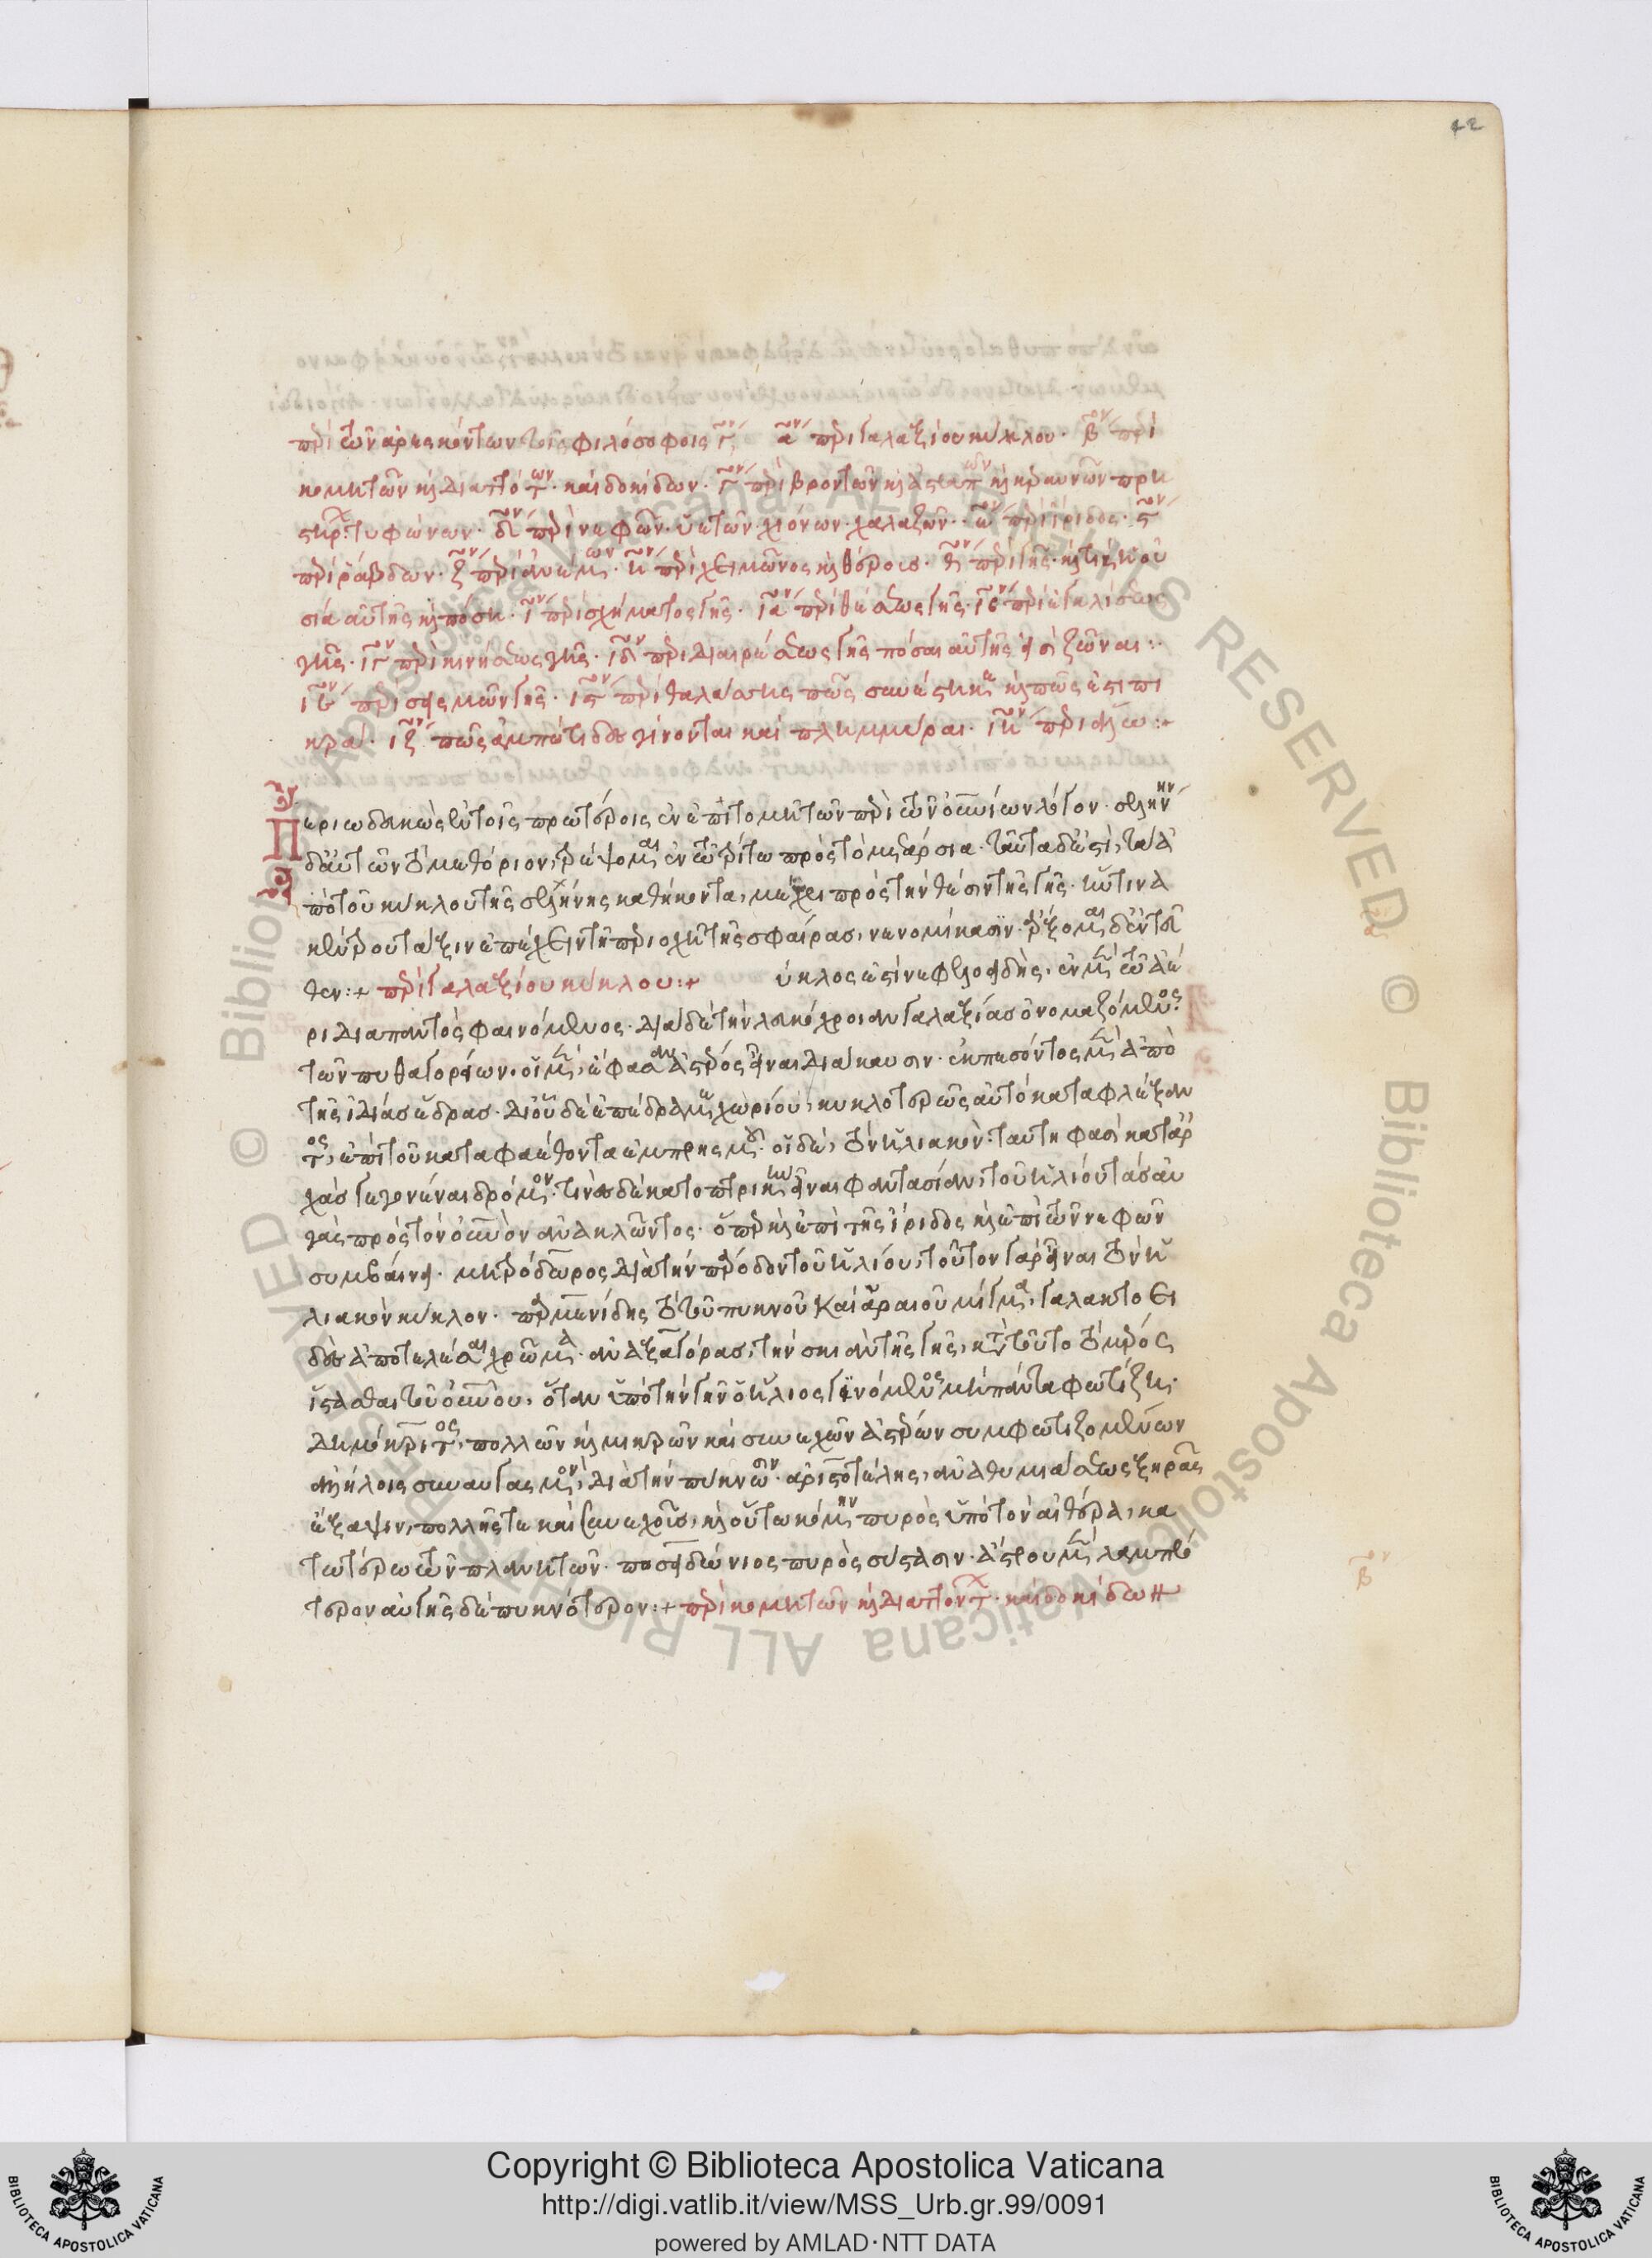 περὶ τῶν ἀρεσκόντων τοῖς φιλοσόφοις γ̅ α̅ον περὶ γαλαξίου κύκλου· β̅ον περὶ
κομητῶν καὶ διαττόντων· καὶ δοκίδων· γ̅ον περὶ βροντῶν καὶ ἀστραπῶν καὶ κεραυνῶν πρη
στήρ· τυφώνων· δ̅ον περὶ νεφῶν· ὑετῶν· χιόνων· χαλαζῶν· ε̅ον περὶ ἴριδος· ϛ̅ον
περὶ ῥάβδων· ζ̅ον περὶ ἀνέμων· η̅ον περὶ χειμῶνος καὶ θέρους· θ̅ον περὶ γῆς· καὶ τίς ἡ οὐ
σία αὐτῆς καὶ πόση· ι̅ον περὶ σχήματος γῆς· ια̅ον περὶ θέσεως γῆς· ιβ̅ον περὶ ἐγκλίσεως
γῆς· ιγ̅ον περὶ κινήσεως γῆς· ιδ̅ον περὶ διαιρέσεως γῆς πόσαι αὐτῆς εἰσὶ ζῶναι:
ιε̅ον περὶ σεισμῶν γῆς· ιϛ̅ον περὶ θαλάσσης πῶς συνέστηκε καὶ πῶς ἐστι πι
κρά· ιζ̅ον πῶς ἀμπώτιδες γίνονται καὶ πλήμμυραι· ιη̅ον περὶ ἅλω:+
Περιωδευκὼς ἐν τοῖς προτέροις ἐν ἐπιτομῇ τὸν περὶ τῶν οὐρανίων λόγον· σελήνην
δ' αὐτῶν τὸ μεθόριον, τρέψομαι ἐν τῷ τρίτῳ πρὸς τὰ μετάρσια· ταῦτα δ' ἐστὶ, τὰ ἀ
πὸ τοῦ κύκλου τῆς σελήνης καθήκοντα, μέχρι πρὸς τὴν θέσιν τῆς γῆς· ἥντινα
κέντρου τάξιν ἐπέχειν τῇ περιοχῇ τῆς σφαίρας, νενομίκασιν· ἄρξομαι δ' ἐντεῦ
θεν:+ περὶ γαλαξίου κύκλου:+ ύκλος ἐστὶ νεφελοειδὴς, ἐν μὲν τῷ ἀέ
ρι διαπαντὸς φαινόμενος· διὰ δὲ τὴν λευκόχροιαν γαλαξίας ὀνομαζόμενος·
τῶν πυθαγορείων, οἱ μὲν, ἔφασαν ἀστέρος εἶναι διάκαυσιν· ἐκπεσόντος μὲν ἀπὸ
τῆς ἰδίας ἕδρας· δι' οὗ δὲ ἐπέδραμε χωρίου, κυκλοτερῶς αὐτὸ καταφλέξαν
τος, ἐπὶ τοῦ κατὰ φαέθοντα ἐμπρησμοῦ· οἱ δὲ, τὸν ἡλιακὸν· ταύτῃ φασὶ κατ' ἀρ
χὰς γεγονέναι δρόμον· τινὲς δὲ κατοπτρικὴν εἶναι φαντασίαν, τοῦ ἡλίου τὰς αὐ
γὰς πρὸς τὸν οὐρανὸν ἀνακλῶντος· ὅπερ καὶ ἐπὶ τῆς ἴριδος καὶ ἐπὶ τῶν νεφῶν
συμβαίνει· μητρόδωρος διὰ τὴν πάροδον τοῦ ἡλίου, τοῦτον γὰρ εἶναι τὸν ἡ
λιακὸν κύκλον· παρμενίδης τὸ τοῦ πυκνοῦ καὶ ἀραιοῦ μίγμα, γαλακτοει
δὲς ἀποτελέσαι χρῶμα· ἀναξαγόρας, τὴν σκιὰν τῆς γῆς, κατὰ τοῦτο τὸ μέρος
ἵστασθαι τοῦ οὐρανοῦ, ὅταν ὑπὸ τὴν γῆν ὁ ἥλιος γινόμενος μὴ πάντα φωτίζῃ·
δημόκριτος, πολλῶν καὶ μικρῶν καὶ συνεχῶν ἀστέρων συμφωτιζομένων
ἀλλήλοις συναυγασμὸν, διὰ τὴν πύκνωσιν· ἀριστοτέλης, ἀναθυμιάσεως ξηρᾶς
ἔξαψιν, πολλῆς τε καὶ συνεχοῦς, καὶ οὕτω κόμην πυρὸς ὑπὸ τὸν αἰθέρα, κα
τωτέρω τῶν πλανητῶν· ποσειδώνιος πυρὸς σύστασιν· ἄστρου μὲν λαμπρό
τερον αὐγῆς δὲ πυκνότερον:+ περὶ κομητῶν καὶ διαττόντ· καὶ δοκίδων
β̅ον